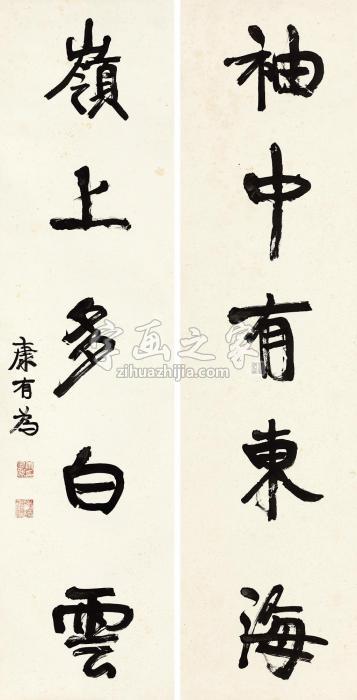 袖中有東海
嶺上多白雲
康有為
字画之家
zihuazhijia.com